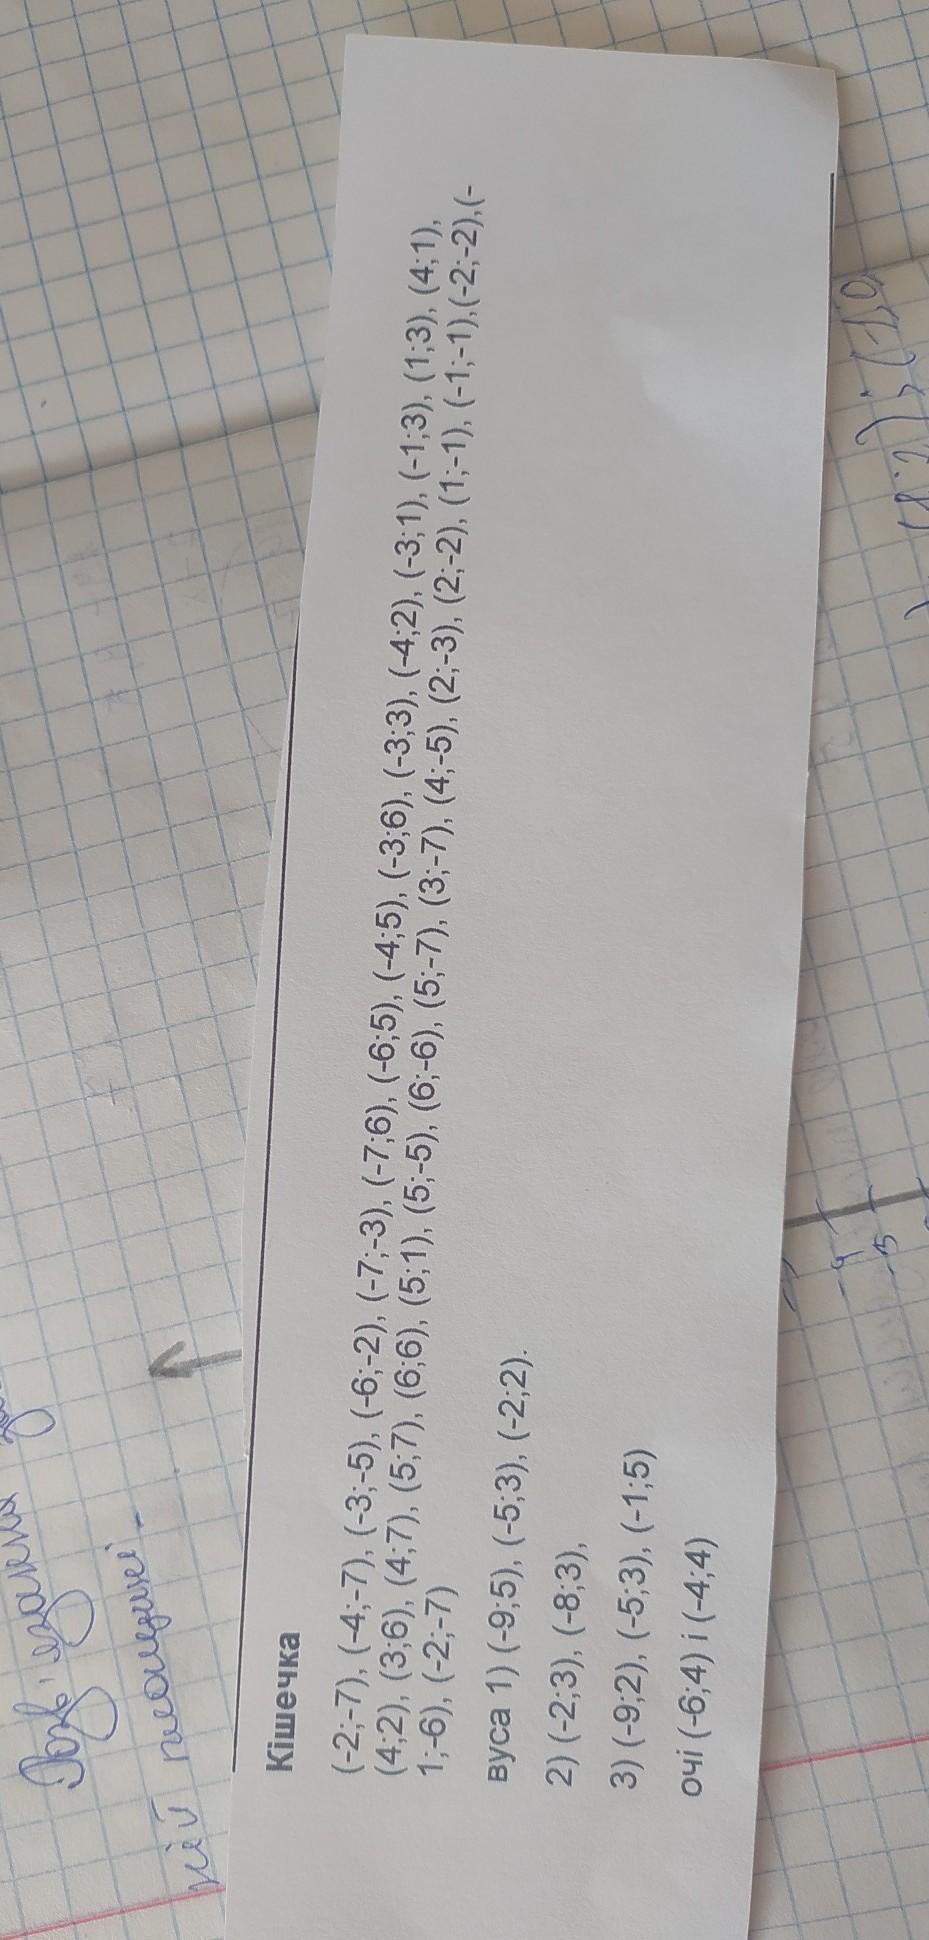 Кішечка
(-2;-7), (-4;-7), (-3;-5), (-6;-2), (-7;-3), (-7;6), (-6;5), (-4;5), (-3;6), (-3;3), (-4;2), (-3;1), (-1;3), (1;3), (4;1),
(4;2), (3;6), (4;7), (5;7), (6;6), (5;1), (5;-5), (6;-6), (5;-7), (3;-7), (4;-5), (2;-3), (2;-2), (1;-1), (-1;-1),(-2;-2),(-
1;-6), (-2;-7)
вуса 1) (-9;5), (-5;3), (-2;2).
2) (-2;3), (-8;3),
3) (-9;2), (-5;3), (-1;5)
очі (-6;4) і (-4;4)
площині.